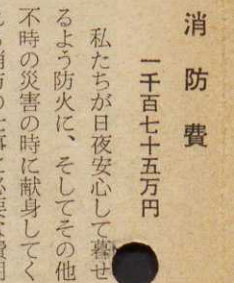 消防費
一千百七十五万円
私たちが日夜安心して暮せ
るよう防火に、そしてその他
不時の災害の時に献身してく